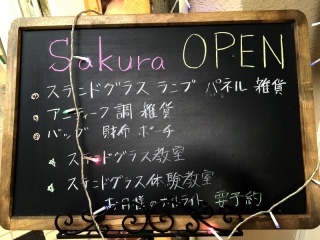 Sakura OPEN
ステンドグラス ランプ パネル 雑貨
アンティーク調 雑貨
バッグ 財布 ポーチ
ステンドグラス教室
ステンドグラス体験教室
お日様の 要予約